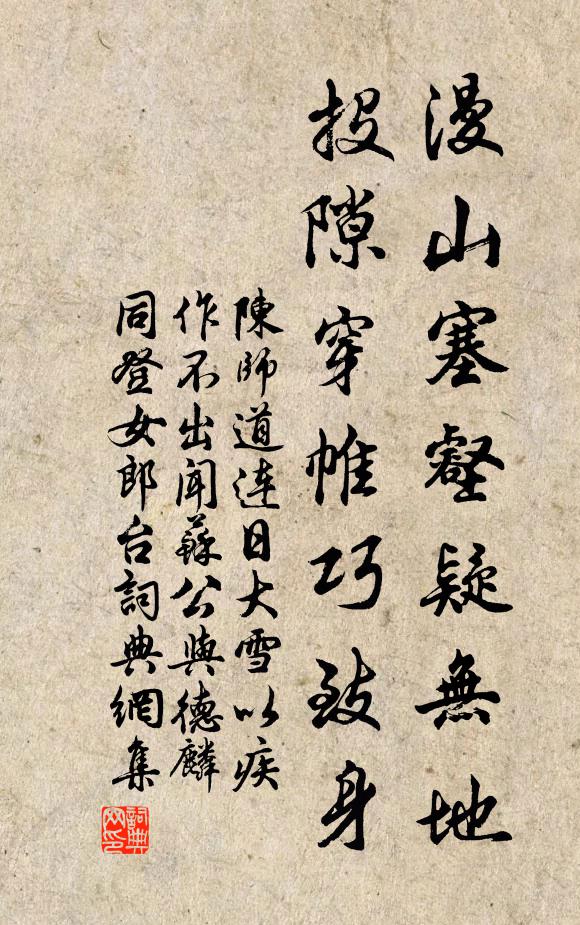 漫山塞壑疑無地
投隙穿帷巧致身
陳師道連日大雪以疾
作不出聞蘇公與德麟
同登女郎台詞典網集
詞典
网印